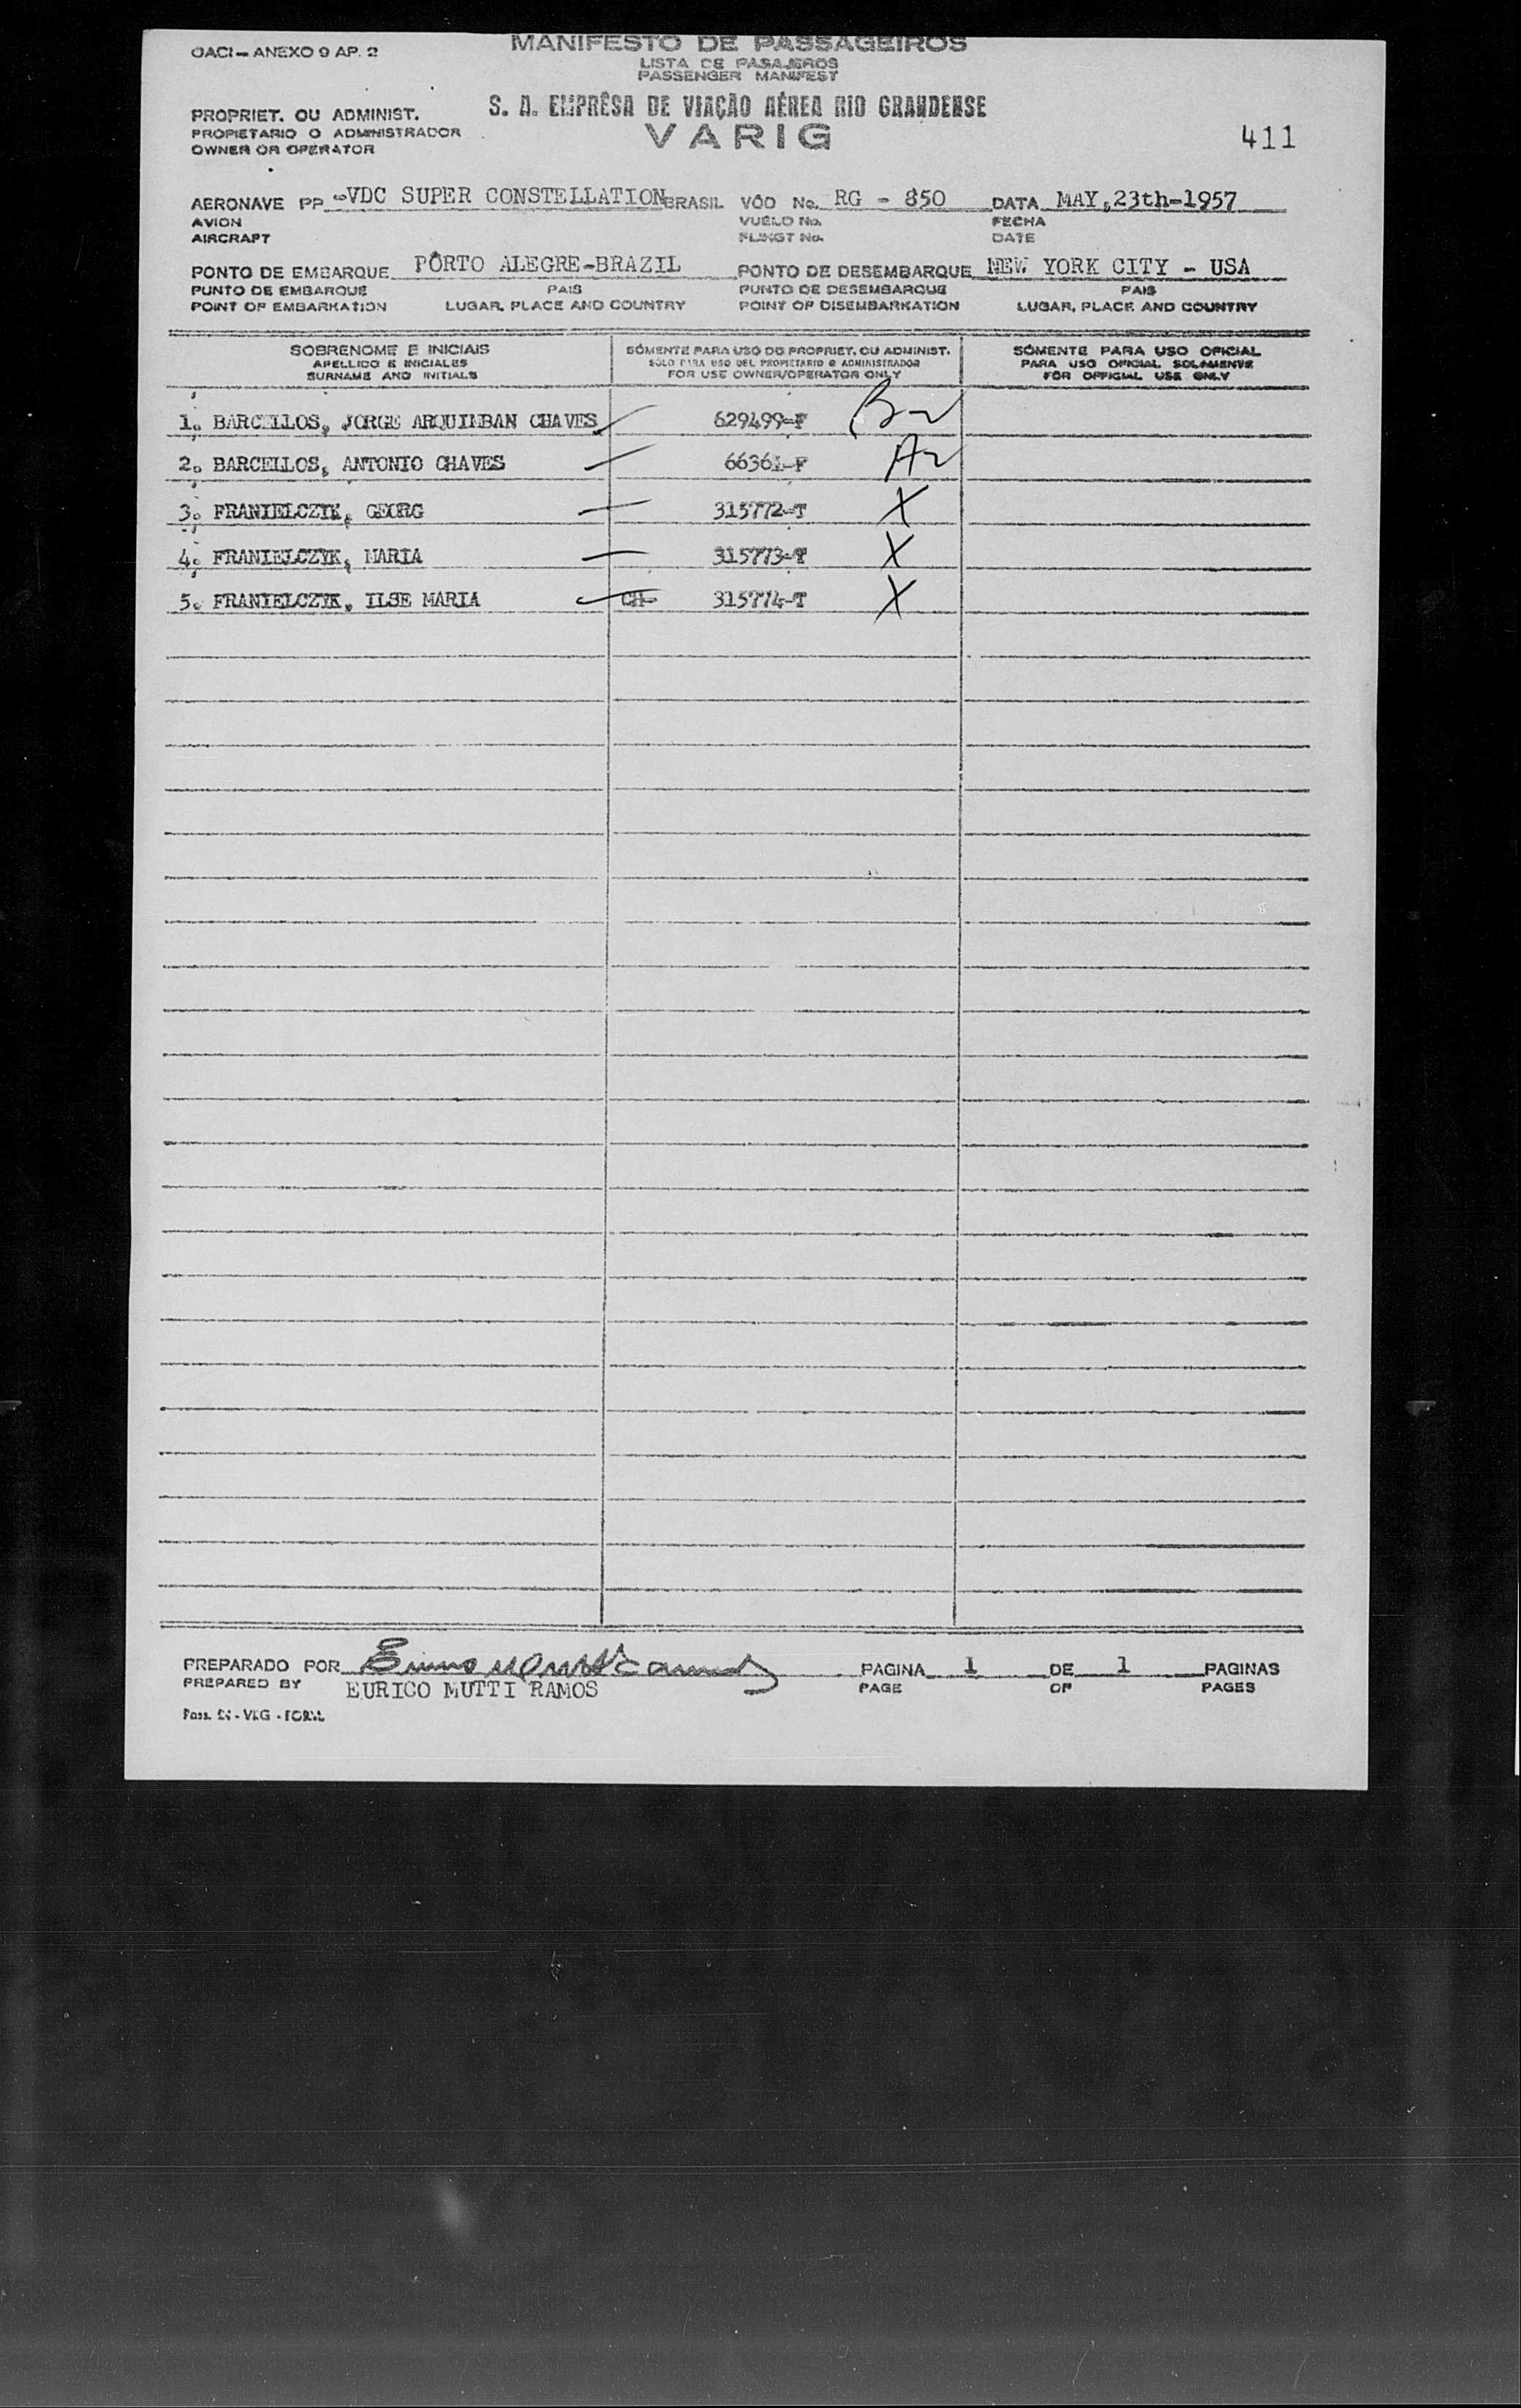 OACI - ANEXO 9 AP. 2
MANIFESTO DE PASSAGEIROS
LISTA DE PASAJEROS
PASSENGER MANIFEST
PROPRIET. OU ADMINIST.
PROPIETARIO O ADMINISTRADOR
OWNER OR OPERATOR
S. A. EMPRÊSA DE VIAÇÃO AÉREA RIO GRANDENSE
VARIG
411
AERONAVE PP -VDC SUPER CONSTELLATION BRASIL VÔO No. RG - 850 DATA MAY,23th-1957
AVION VUELO No. FECHA
AIRCRAFT FLINGT No. DATE
PONTO DE EMBARQUE PÔRTO ALEGRE-BRAZIL PONTO DE DESEMBARQUE NEW YORK CITY - USA
PUNTO DE EMBARQUE PAIS PUNTO DE DESEMBARQUE PAIS
POINT OF EMBARKATION LUGAR, PLACE AND COUNTRY POINT OF DISEMBARKATION LUGAR, PLACE AND COUNTRY
SOBRENOME E INICIAIS SÓMENTE PARA USO DO PROPRIET. OU ADMINIST. SÓMENTE PARA USO OFICIAL
APELLIDO E INICIALES SOLO PARA USO DEL PROPIETARIO O ADMINISTRADOR PARA USO OFICIAL SOLAMENTE
SURNAME AND INITIALS FOR USE OWNER/OPERATOR ONLY FOR OFFICIAL USE ONLY
1. BARCELLOS, JORGE ARQUIMBAN CHAVES 629499-F
2. BARCELLOS, ANTONIO CHAVES 66361-F
3. FRANIELCZYK, GEORG 315772-T X
4. FRANIELCZYK, MARIA 315773-T X
5. FRANIELCZYK, ILSE MARIA CH- 315774-T X
PREPARADO POR PAGINA 1 DE 1 PAGINAS
PREPARED BY EURICO MUTTI RAMOS PAGE OF PAGES